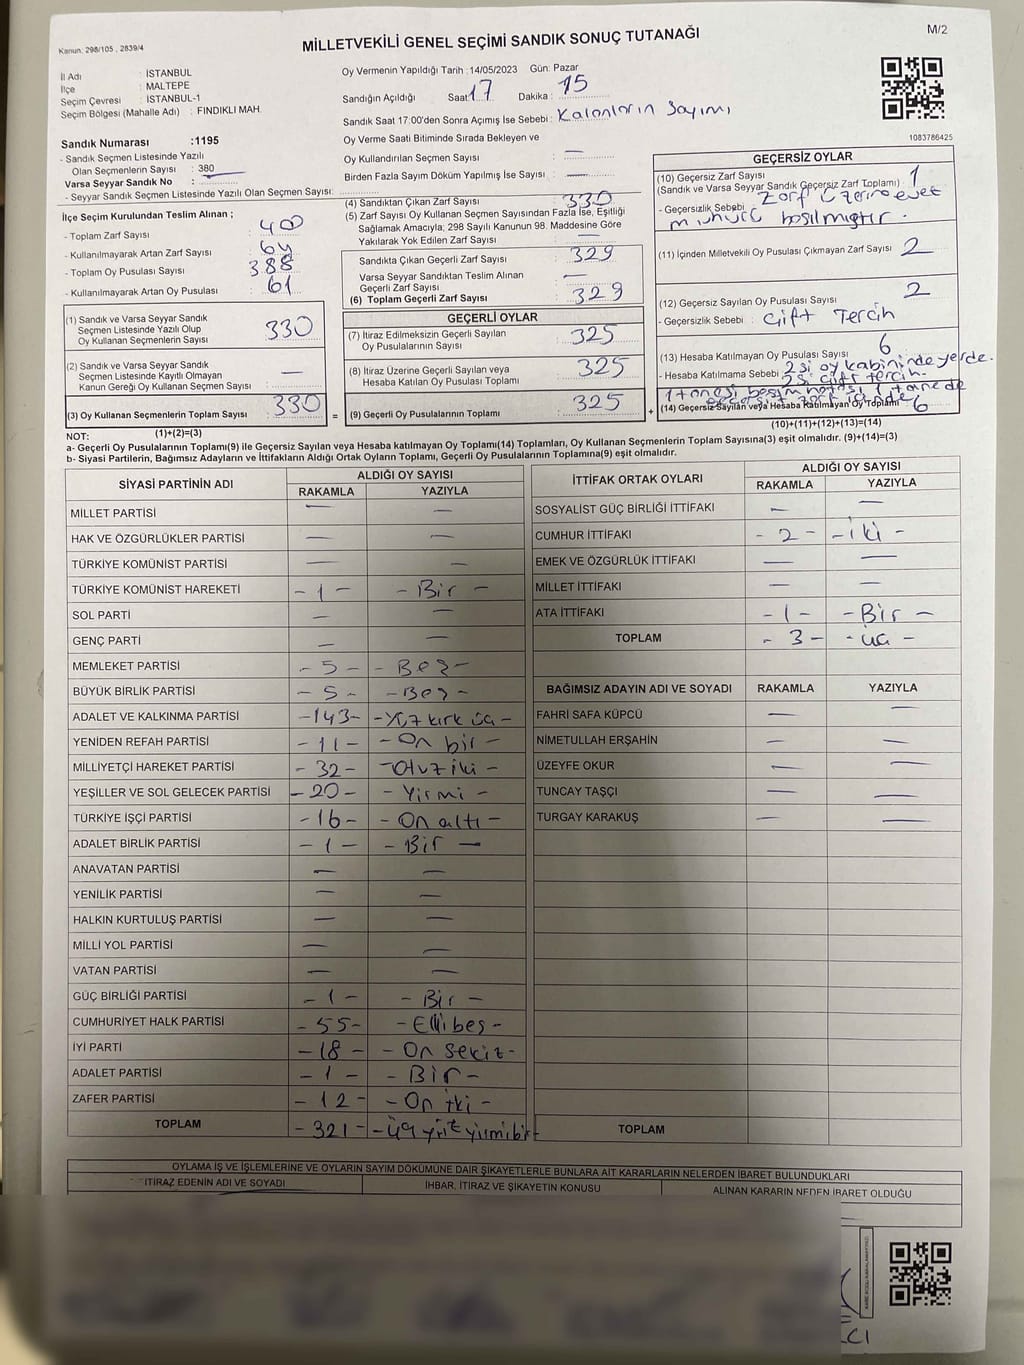 Kanun: 298/105 , 2839/4
MİLLETVEKİLİ GENEL SEÇİMİ SANDIK SONUÇ TUTANAĞI
M/2
İl Adı : İSTANBUL
İlçe : MALTEPE
Seçim Çevresi : İSTANBUL-1
Seçim Bölgesi (Mahalle Adı) : FINDIKLI MAH.
Oy Vermenin Yapıldığı Tarih : 14/05/2023 Gün: Pazar
Sandığın Açıldığı Saat: 17 Dakika : 15
Sandık Saat 17:00'den Sonra Açımış İse Sebebi : Kalanların Sayımı
Oy Verme Saati Bitiminde Sırada Bekleyen ve
Oy Kullandırılan Seçmen Sayısı : —
Birden Fazla Sayım Döküm Yapılmış İse Sayısı : —
1083786425
Sandık Numarası :1195
- Sandık Seçmen Listesinde Yazılı
Olan Seçmenlerin Sayısı : 380
Varsa Seyyar Sandık No :
- Seyyar Sandık Seçmen Listesinde Yazılı Olan Seçmen Sayısı:
İlçe Seçim Kurulundan Teslim Alınan ;
- Toplam Zarf Sayısı : 400
- Kullanılmayarak Artan Zarf Sayısı : 64
- Toplam Oy Pusulası Sayısı : 388
- Kullanılmayarak Artan Oy Pusulası : 61
(1) Sandık ve Varsa Seyyar Sandık
Seçmen Listesinde Yazılı Olup
Oy Kullanan Seçmenlerin Sayısı : 330
(2) Sandık ve Varsa Seyyar Sandık
Seçmen Listesinde Kayıtlı Olmayan
Kanun Gereği Oy Kullanan Seçmen Sayısı : —
(3) Oy Kullanan Seçmenlerin Toplam Sayısı : 330 =
(1)+(2)=(3)
(4) Sandıktan Çıkan Zarf Sayısı : 330
(5) Zarf Sayısı Oy Kullanan Seçmen Sayısından Fazla İse, Eşitliği
Sağlamak Amacıyla; 298 Sayılı Kanunun 98. Maddesine Göre
Yakılarak Yok Edilen Zarf Sayısı : —
Sandıkta Çıkan Geçerli Zarf Sayısı : 329
Varsa Seyyar Sandıktan Teslim Alınan
Geçerli Zarf Sayısı : —
(6) Toplam Geçerli Zarf Sayısı : 329
GEÇERLİ OYLAR
(7) İtiraz Edilmeksizin Geçerli Sayılan
Oy Pusulalarının Sayısı : 325
(8) İtiraz Üzerine Geçerli Sayılan veya
Hesaba Katılan Oy Pusulası Toplamı : 325
(9) Geçerli Oy Pusulalarının Toplamı : 325 +
GEÇERSİZ OYLAR
(10) Geçersiz Zarf Sayısı : 1
(Sandık ve Varsa Seyyar Sandık Geçersiz Zarf Toplamı)
- Geçersizlik Sebebi : Zarf üzerine evet
mühürü basılmıştır.
(11) İçinden Milletvekili Oy Pusulası Çıkmayan Zarf Sayısı : 2
(12) Geçersiz Sayılan Oy Pusulası Sayısı : 2
- Geçersizlik Sebebi : Çift Tercih
(13) Hesaba Katılmayan Oy Pusulası Sayısı : 6
- Hesaba Katılmama Sebebi : 2 si oy kabininde yerde.
2 si çift tercih.
1 tanesi basım hatası 1 tanede
zarf içinde
(14) Geçersiz Sayılan veya Hesaba Katılmayan Oy Toplamı : 6
(10)+(11)+(12)+(13)=(14)
NOT:
a- Geçerli Oy Pusulalarının Toplamı(9) ile Geçersiz Sayılan veya Hesaba katılmayan Oy Toplamı(14) Toplamları, Oy Kullanan Seçmenlerin Toplam Sayısına(3) eşit olmalıdır. (9)+(14)=(3)
b- Siyasi Partilerin, Bağımsız Adayların ve İttifakların Aldığı Ortak Oyların Toplamı, Geçerli Oy Pusulalarının Toplamına(9) eşit olmalıdır.
SİYASİ PARTİNİN ADI ALDIĞI OY SAYISI
RAKAMLA YAZIYLA
MİLLET PARTİSİ — —
HAK VE ÖZGÜRLÜKLER PARTİSİ — —
TÜRKİYE KOMÜNİST PARTİSİ — —
TÜRKİYE KOMÜNİST HAREKETİ - 1 - - Bir -
SOL PARTİ — —
GENÇ PARTİ — —
MEMLEKET PARTİSİ - 5 - - Beş -
BÜYÜK BİRLİK PARTİSİ - 5 - - Beş -
ADALET VE KALKINMA PARTİSİ -143- - Yüz kırk üç -
YENİDEN REFAH PARTİSİ - 11 - - On bir -
MİLLİYETÇİ HAREKET PARTİSİ - 32 - - Otuz iki -
YEŞİLLER VE SOL GELECEK PARTİSİ - 20 - - Yirmi -
TÜRKİYE İŞÇİ PARTİSİ - 16 - - On altı -
ADALET BİRLİK PARTİSİ - 1 - - Bir -
ANAVATAN PARTİSİ — —
YENİLİK PARTİSİ — —
HALKIN KURTULUŞ PARTİSİ — —
MİLLİ YOL PARTİSİ — —
VATAN PARTİSİ — —
GÜÇ BİRLİĞİ PARTİSİ - 1 - - Bir -
CUMHURİYET HALK PARTİSİ - 55 - - Elli beş -
İYİ PARTİ - 18 - - On sekiz -
ADALET PARTİSİ - 1 - - Bir -
ZAFER PARTİSİ - 12 - - On iki -
TOPLAM - 321 - - Üç yüz yirmi bir
İTTİFAK ORTAK OYLARI ALDIĞI OY SAYISI
RAKAMLA YAZIYLA
SOSYALİST GÜÇ BİRLİĞİ İTTİFAKI — —
CUMHUR İTTİFAKI - 2 - - iki -
EMEK VE ÖZGÜRLÜK İTTİFAKI — —
MİLLET İTTİFAKI — —
ATA İTTİFAKI - 1 - - Bir -
TOPLAM - 3 - - üç -
BAĞIMSIZ ADAYIN ADI VE SOYADI RAKAMLA YAZIYLA
FAHRİ SAFA KÜPCÜ — —
NİMETULLAH ERŞAHİN — —
ÜZEYFE OKUR — —
TUNCAY TAŞÇI — —
TURGAY KARAKUŞ — —
TOPLAM
OYLAMA İŞ VE İŞLEMLERİNE VE OYLARIN SAYIM DÖKÜMÜNE DAİR ŞİKAYETLERLE BUNLARA AİT KARARLARIN NELERDEN İBARET BULUNDUKLARI
İTİRAZ EDENİN ADI VE SOYADI İHBAR, İTİRAZ VE ŞİKAYETİN KONUSU ALINAN KARARIN NEDEN İBARET OLDUĞU